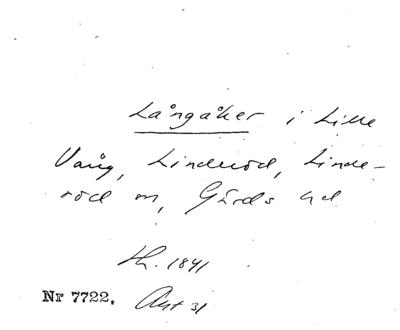 Långåker i Lille
Vång, Linderöd, Linde-
röd sn, Gärds hd
Th. 1841
Nr 7722. Akt 31